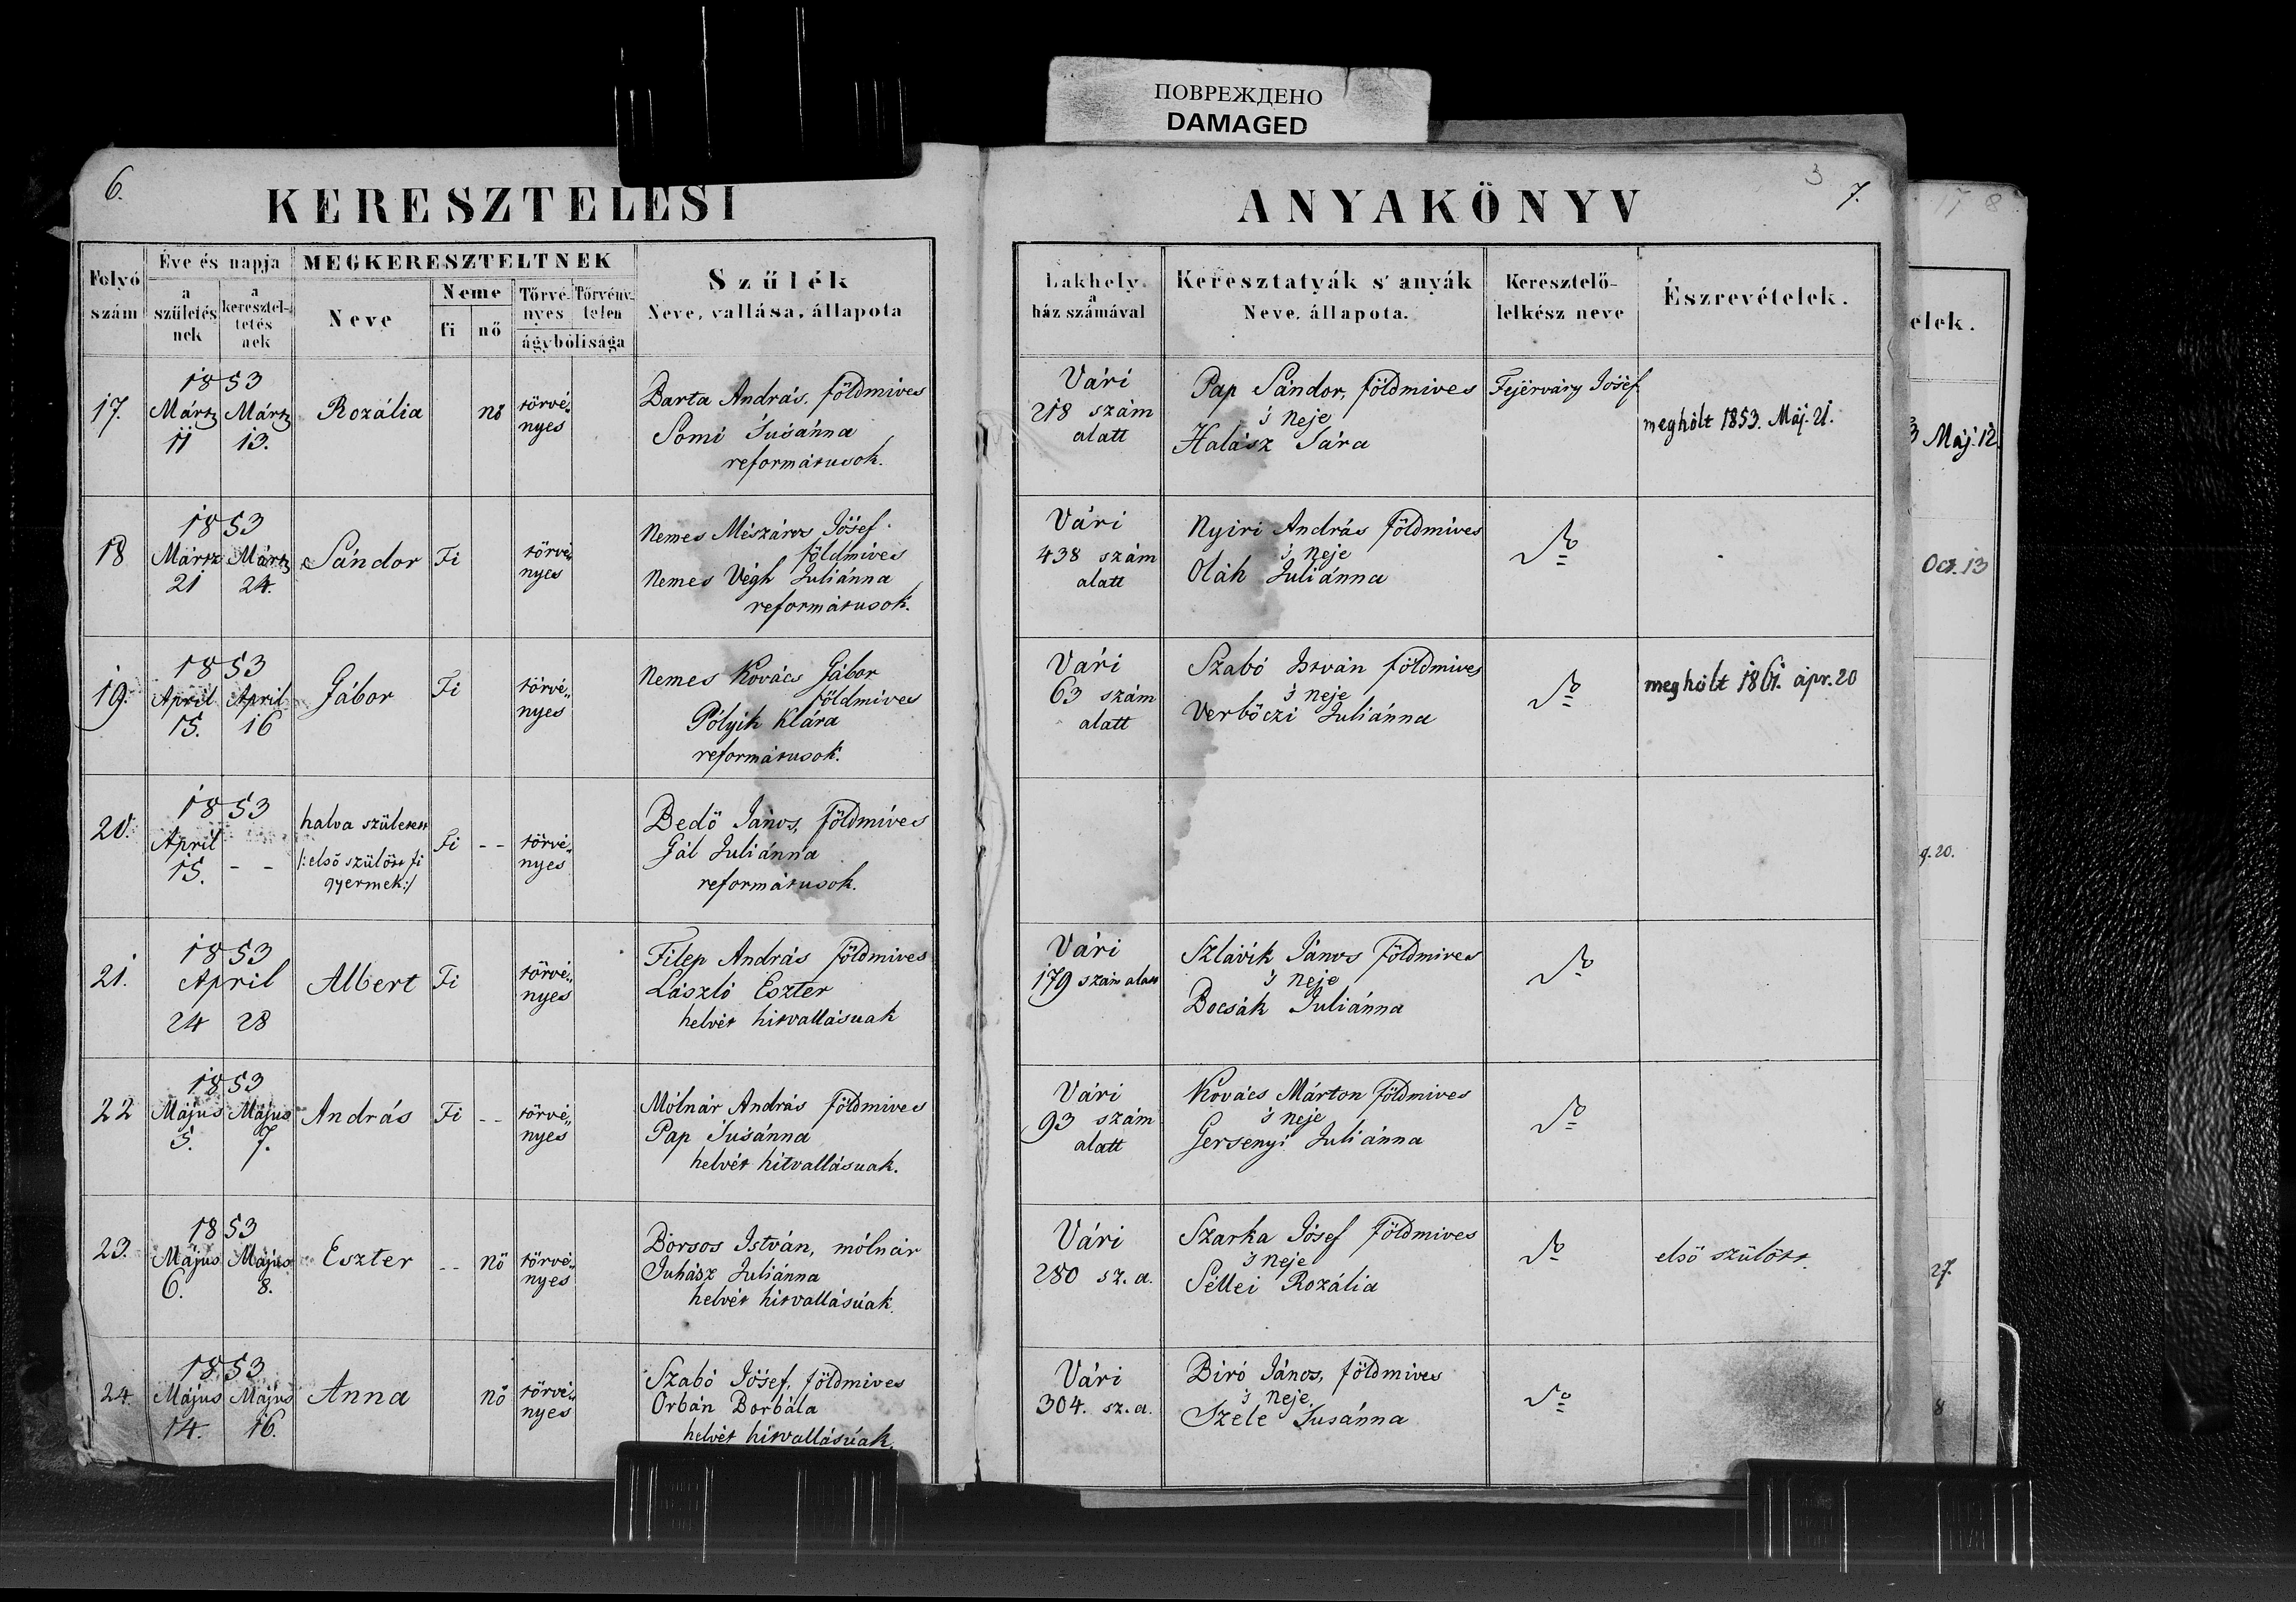 ПОВРЕЖДЕНО
DAMAGED
6.
KERESZTELESI
ANYAKÖNYV
3
7.
17 8
Folyó szám
Éve és napja
a születésnek
a keresteltetésnek
MEGKERESZTELTNEK
Neve
Neme
fi
nő
Törvényes
Törvénytelen
ágybólisága
Szűlék
Neve, vallása, állapota
Lakhely
a ház számával
Keresztatyák s' anyák
Neve, állapota.
Keresztelő-
lelkész neve
Észrevételek.
elek.
17.
1853
Mártz Mártz
11 13.
Rozália
nő
törvé„
nyes
Barta András, földmives
Somi Susánna
reformátusok.
Vári
218 szám
alatt
Pap Sándor, földmives
's neje
Halász Sára
Fejérváry Josef.
meghólt 1853. Máj. 21.
3 Máj. 12.
18
1853
Mártz Mártz
21 24.
Sándor
Fi
törvé„
nyes
Nemes Mészáros Jósef
földmives
Nemes Végh Juliánna
reformátusok.
Vári
438 szám
alatt
Nyiri András földmives
's neje
Oláh Juliánna
Do
Oct. 13
19.
1853
April April
15. 16
Gábor
Fi
törvé„
nyes
Nemes Kovács Gábor
földmives
Pólyik Klára
reformátusok.
Vári
63 szám
alatt
Szabó István földmives
's neje
Verbőczi Juliánna
Do
meghólt 1861. apr. 20
20.
1853
April
15. - -
halva született
/: első szülött fi
gyermek :/
Fi
- -
törvé„
nyes
Bedő János, földmives
Gál Juliánna
reformátusok.
g. 20.
21.
1853
April
24 28
Albert
Fi
törvé„
nyes
Filep András földmives
László Eszter
helvét hitvallásuak
Vári
179 szám alatt
Szlávik János földmives
's neje
Bocsák Juliánna
Do
22
1853
Május Május
5. 7.
András
Fi
- -
törvé„
nyes
Mólnár András földmives
Pap Susánna
helvét hitvallásuak.
Vári
93 szám
alatt
Kovács Márton földmives
's neje
Gersenyi Juliánna
Do
23.
1853
Május Május
6. 8.
Eszter
- -
nő
törvé„
nyes
Borsos István, mólnár
Juhász Juliánna
helvét hitvallásúak.
Vári
280 sz. a.
Szarka Jósef földmives
's neje
Séllei Rozália
Do
első szülött.
27.
24.
1853
Május Május
14. 16.
Anna
nő
törvé„
nyes
Szabó Jósef, földmives
Orbán Borbála
helvét hitvallásúak.
Vári
304. sz. a.
Biró János, földmives
's neje
Szele Susánna
Do
8